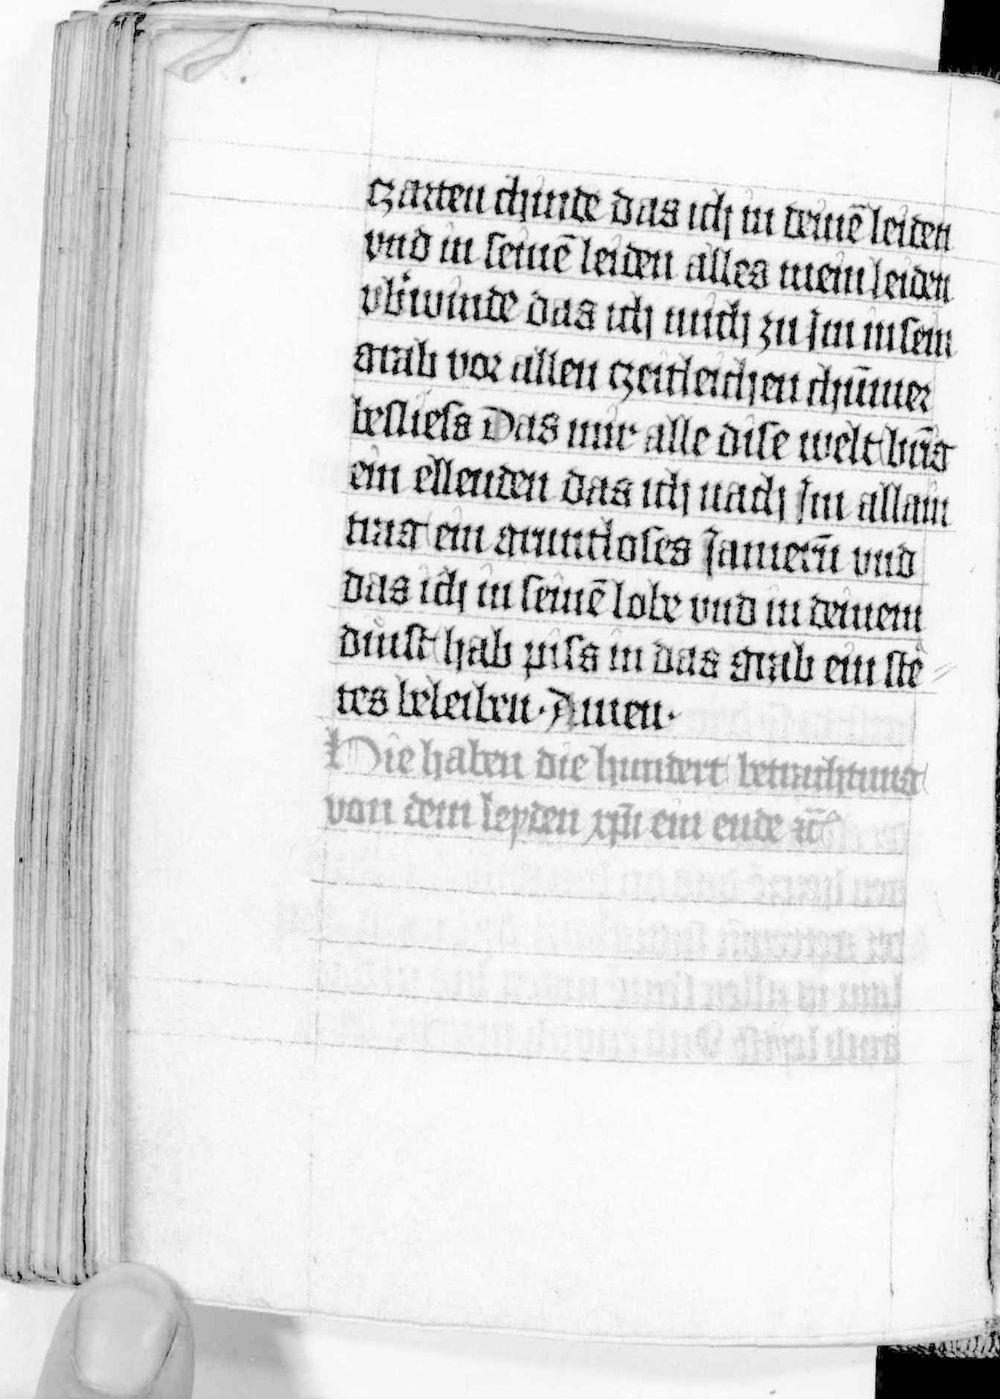 czarten chinde das ich in deinē leiden
vnd in seinē leiden alles mein leiden
vb͛winde das ich mich zu Im in sein
grab vor allen czeitleichen chūmer
besliess Das mir alle dise welt brīg
ein ellenden das ich nach Im allain
trag ein gruntloses Jamern̄ vnd
das ich in seinē lobe vnd in deinem
dinst hab piss in das grab ein stē
tes beleiben · Amen ·
Hie haben die hundert betrachtung
von dem leyden xp̄i ein ende ⁊c̄